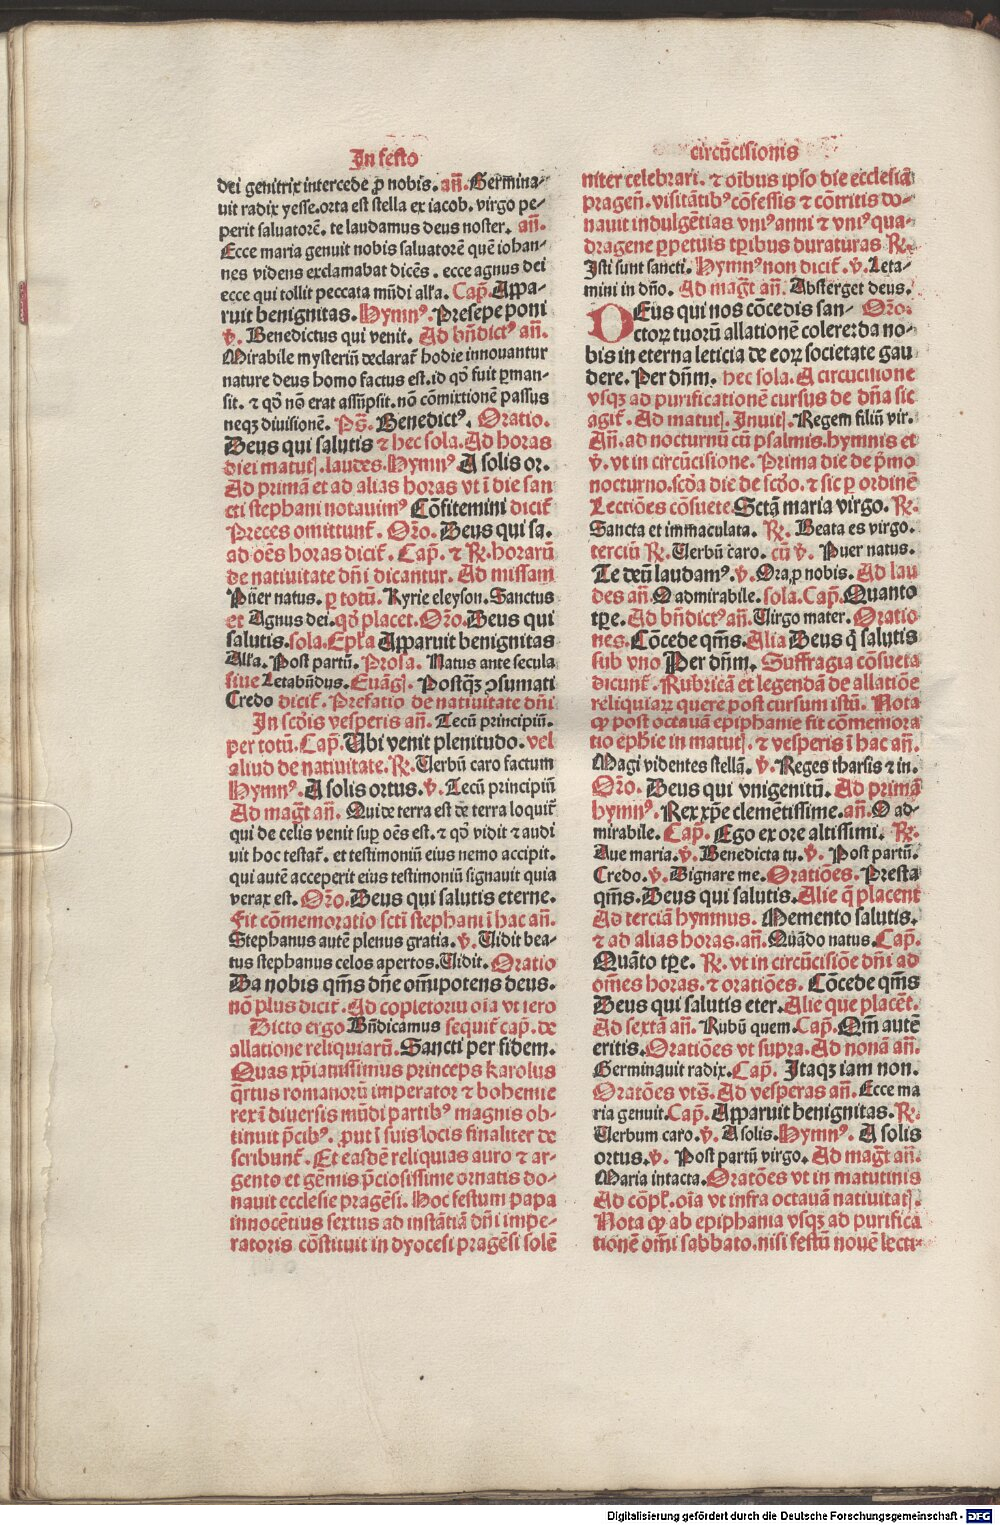 In festo
dei genitrix intercede ꝓ nobis. an̄. Germina-
uit radix yesse.orta est stella ex iacob. virgo pe-
perit saluatorē. te laudamus deus noster. an̄.
Ecce maria genuit nobis saluatorē quē iohan-
nes videns exclamabat dicēs. ecce agnus dei
ecce qui tollit peccata mūdi alľa. Cap̄. Appa-
ruit benignitas. Hymnꝰ. Presepe poni
v̄. Benedictus qui venit. Ad bn̄dictꝰ an̄.
Mirabile mysteriū declarat̄ hodie innouantur
nature deus homo factus est.id qd̄ fuit ꝑman-
sit. ⁊ qd̄ nō erat assūpsit.nō cōmixtionē passus
neqꝫ diuisionē. Ps̄. Benedictꝰ. Oratio.
Deus qui salutis ⁊ hec sola. Ad horas
diei matuť. laudes. Hymnꝰ A solis or.
Ad primā et ad alias horas vt ī die san
cti stephani notauimꝰ Cōfitemini dicit̄
Preces omittunt̄. Or̄o. Deus qui sa.
ad oēs horas dicit̄. Cap̄. ⁊ R̄. horarū
de natiuitate dn̄i dicantur. Ad missam
Puer natus. ꝑ totū. Kyrie eleyson. Sanctus
et Agnus dei. qd̄ placet. Or̄o. Deus qui
salutis. sola. Epľa Apparuit benignitas
Alľa. Post partū. Prosa. Natus ante secula
siue Letabūdus. Euāgľ. Postqꝫ ꝯsumati
Credo dicit̄. Prefatio de natiuitate dn̄i
In scd̄is vesperis an̄. Tecū principiū.
per totū. Cap̄. Ubi venit plenitudo. vel
aliud de natiuitate. R̄. Verbū caro factum
Hymnꝰ. A solis ortus. v̄. Tecū principiū
Ad maḡt an̄. Qui de terra est de terra loquit̄
qui de celis venit suꝑ oēs est. ⁊ qd̄ vidit ⁊ audi
uit hoc testat̄. et testimoniū eius nemo accipit.
qui autē acceperit eius testimoniū signauit quia
verax est. Or̄o. Deus qui salutis eterne.
Fit cōmemoratio scti stephani ī hac an̄.
Stephanus autē plenus gratia. v̄. Vidit bea-
tus stephanus celos apertos. Vidit. Oratio
Da nobis qm̄s dn̄e om̄ipotens deus.
nō plus dicit̄. Ad copletoriu oīa vt iero
Dicto ergo Bn̄dicamus sequit̄ cap̄. de
allatione reliquiarū. Sancti per fidem.
Quas xp̄iatissimus princeps Karolus
q̄rtus romanorū imperator ⁊ bohemie
rex ī diuersis mūdi partibꝰ magnis ob-
tinuit p̄cibꝰ. ꝓut ī suis locis finaliter de
scribunt̄. Et easdē reliquias auro ⁊ ar-
gento et gēmis p̄ciosissime ornatis do-
nauit ecclesie pragēsi. Hoc festum papa
innocētius sextus ad instātiā dn̄i impe-
ratoris cōstituit in dyocesi pragēsi solē
circūcisionis
niter celebrari. ⁊ oībus ipso die ecclesiā
pragen̄. visitātibꝰ cōfessis ⁊ cōtritis do-
nauit indulgētias vniꝰ anni ⁊ vniꝰ qua-
dragene ꝑpetuis tꝑibus duraturas R̄.
Isti sunt sancti. Hymnꝰ non dicit̄. v̄. Leta-
mini in dn̄o. Ad maḡt an̄. Absterget deus.
DEus qui nos cōcedis san- Or̄o.
ctoꝝ tuorū allationē colere: da no-
bis in eterna leticia de eoꝝ societate gau
dere. Per dn̄m. hec sola. A circucitione
vsqꝫ ad purificationē cursus de dn̄a sic
agit̄. Ad matuť. Inuiť. Regem filiū vir.
An̄. ad nocturnū cū psalmis. hymnis et
v̄. vt in circūcisione. Prima die de p̄mo
nocturno. scd̄a die de scd̄o. ⁊ sic ꝑ ordinē
Lectiōes cōsuete. Sctā maria virgo. R̄.
Sancta et immaculata. R̄. Beata es virgo.
terciū R̄. Verbū caro. cū v̄. Puer natus.
Te deū laudamꝰ. v̄. Ora ꝓ nobis. Ad lau
des an̄. O admirabile. sola. Cap̄. Quanto
tꝑe. Ad bn̄dictꝰ an̄. Virgo mater. Oratio
nes. Cōcede qm̄s. Alia Deus q̄ salutis
sub vno Per dn̄m. Suffragia cōsueta
dicunt̄. Rubricā et legendā de allatiōe
reliquiaꝝ quere post cursum istū. Nota
ꝙ post octauā epiphanie fit cōmemora
tio eph̄ie in matuť. ⁊ vesperis ī hac an̄.
Magi videntes stellā. v̄. Reges tharsis ⁊ in.
Or̄o. Deus qui vnigenitū. Ad primā
hymnꝰ. Rex xp̄e clemētissime. an̄. O ad-
mirabile. Cap̄. Ego ex ore altissimi. R̄.
Aue maria. v̄. Benedicta tu. v̄. Post partū.
Credo. v̄. Dignare me. Oratiōes. Presta
qm̄s. Deus qui salutis. Alie q̄ placent
Ad terciā hymnus. Memento salutis.
⁊ ad alias horas. an̄. Quādo natus. Cap̄.
Quāto tꝑe. R̄. vt in circūcisiōe dn̄i ad
om̄es horas. ⁊ oratiōes. Cōcede qm̄s
Deus qui salutis eter. Alie que placēt.
Ad sextā an̄. Rubū quem. Cap̄. Qm̄ autē
eritis. Oratiōes vt supra. Ad nonā an̄.
Germinauit radix. Cap̄. Itaqꝫ iam non.
Oratōes vts̄. Ad vesperas an̄. Ecce ma
ria genuit. Cap̄. Apparuit benignitas. R̄.
Verbum caro. v̄. A solis. Hymnꝰ. A solis
ortus. v̄. Post partū virgo. Ad maḡt an̄.
Maria intacta. Oratōes vt in matutinis
Ad cōpľ. oīa vt infra octauā natiuitať.
Nota ꝙ ab epiphania vsqꝫ ad purifica
tionē om̄i sabbato. nisi festū nouē lecti-
Digitalisierung gefördert durch die Deutsche Forschungsgemeinschaft - DFG